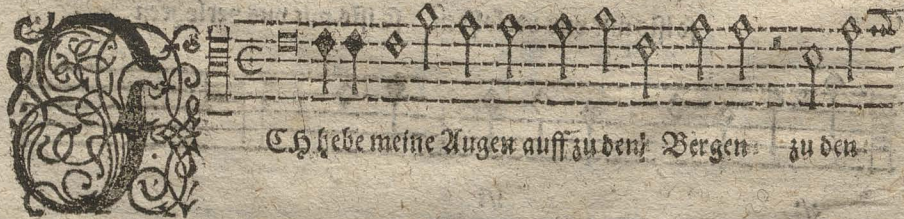 JCH hebe meine Augen auff zu den Bergen zu den